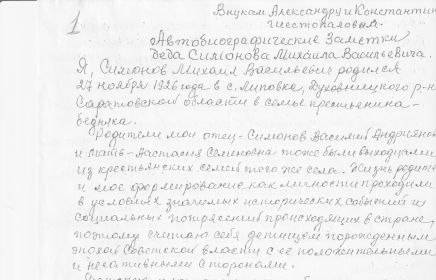 1
Внукам Александру и Константин
Шестопаловым
Автобиографические Заметки
деда Симонова Михаила Васильевича.
Я, Симонов Михаил Васильевич родился
27 ноября 1926 года в с. Липовка, Духовницкого р-н
Саратовской области в семье крестьянина-
бедняка.
Родители мои отец - Симонов Василий Андриянов
и мать - Анастасия Семеновна тоже были выходцами
из крестьянских семей того же села. Жизнь родите
и мое формирование как личности проходили
в условиях значимых исторических событий и
социальных потрясений происходящих в стране,
поэтому считаю себя детищем порожденным
эпохой Советской власти с ее положительными
и негативными сторонами.